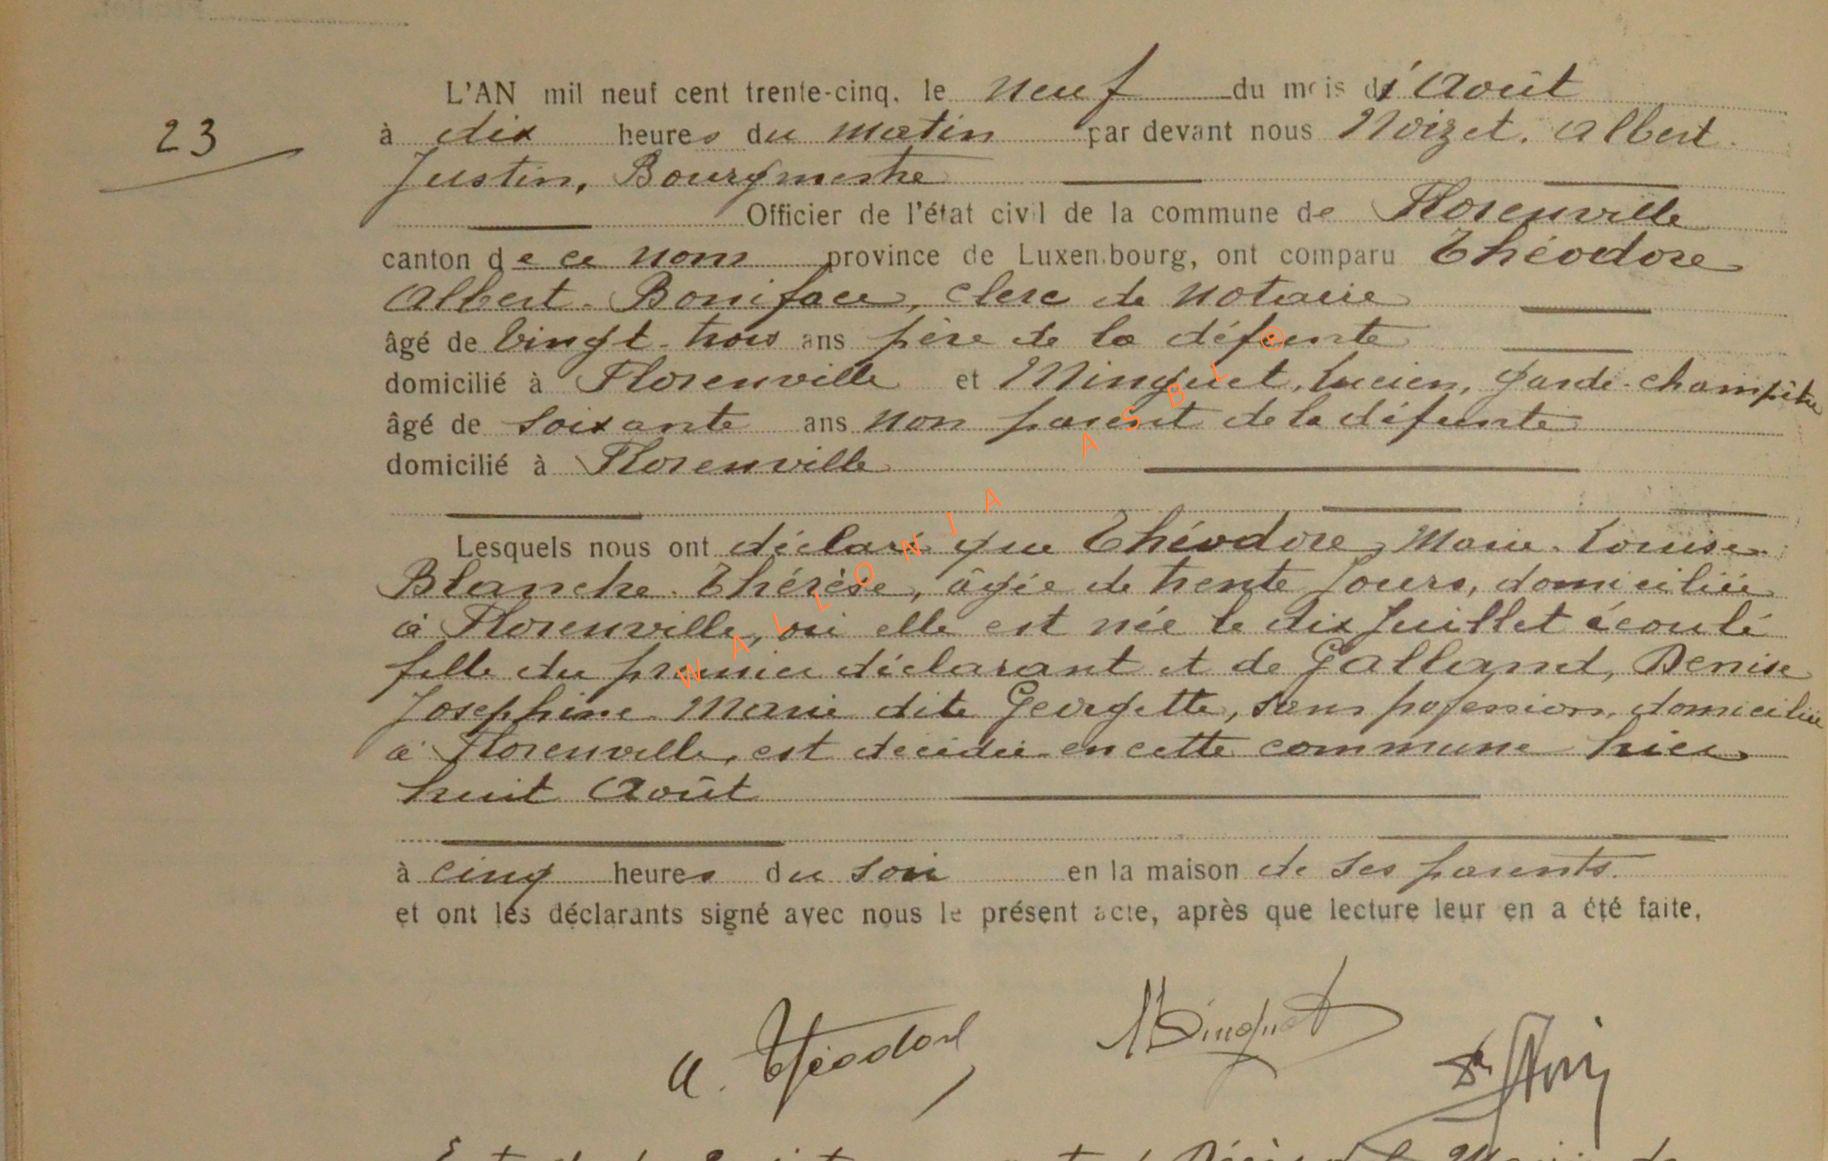 L'AN mil neuf cent trente-cinq, le neuf du mois d'Août
23
à dix heures du matin par devant nous Noizet. Albert
Justin, Bourgmestre
Officier de l'état civil de la commune de Florenville
canton de ce nom province de Luxembourg, ont comparu Théodore
Albert. Boniface, clerc de notaire
âgé de Vingt-trois ans père de la défunte
domicilié à Florenville et Minguet, Lucien, garde-champêtre
âgé de soixante ans non parent de la défunte
domicilié à Florenville
Lesquels nous ont déclaré que Théodore, Marie. Louise.
Blanche. Thérèse, âgée de trente jours, domiciliée
à Florenville, où elle est née le dix Juillet écoulé
fille du premier déclarant et de Galland, Denise
Josephine Marie dite Georgette, sans profession, domiciliée
à Florenville, est décédée en cette commune hier
huit Août
à cinq heures du soir en la maison de ses parents.
et ont les déclarants signé avec nous le présent acte, après que lecture leur en a été faite.
A. Théodore Minguet
WALLONIA ASBL ©